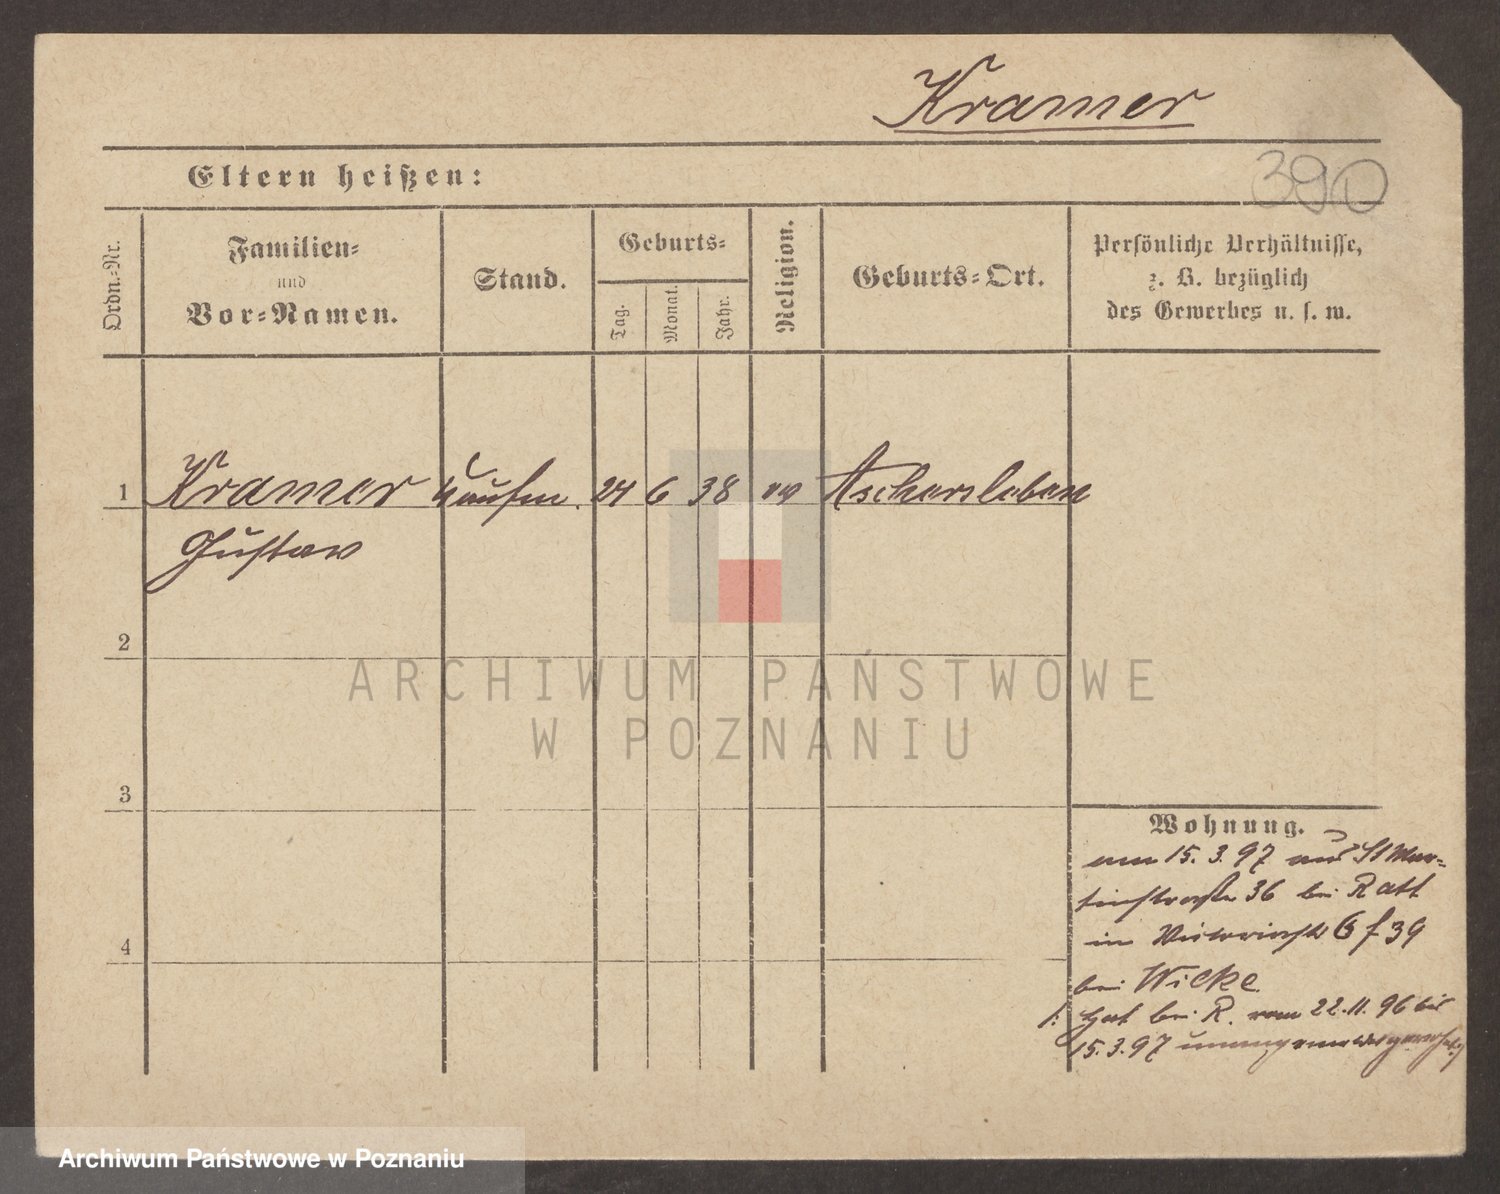 Kramer
390
Eltern heißen:
Ordn.-Nr.
Familien-
und
Vor-Namen.
Stand.
Geburts-
Tag.
Monat.
Jahr.
Religion.
Geburts-Ort.
Persönliche Verhältnisse,
z. B. bezüglich
des Gewerbes u. s. w.
1 Kramer Kaufm. 24 6 38 ev Aschersleben
Gustav
2
3
4
ARCHIWUM PAŃSTWOWE
W POZNANIU
Wohnung.
am 15. 3. 97 aus St Mar-
tinstraße 36 bei Ratt
in Victoriastr 39
bei Wicke
/: Hat bei R. vom 22.11.96 bis
15.3.97 unangemeldet gewohnt :/
Archiwum Państwowe w Poznaniu